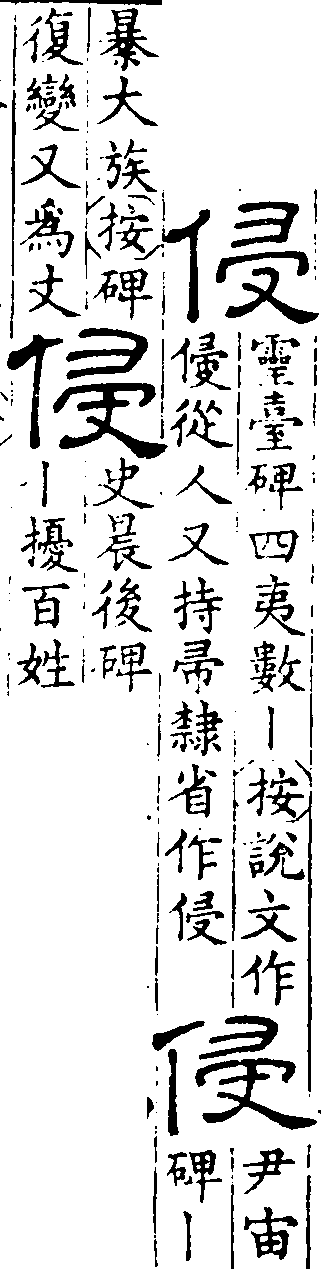 侵
靈臺碑四夷數丨按說文作
㑴從人又持帚隸省作侵
侵
尹宙
碑丨
暴大族按碑
復變又爲丈
侵
史晨後碑
丨擾百姓